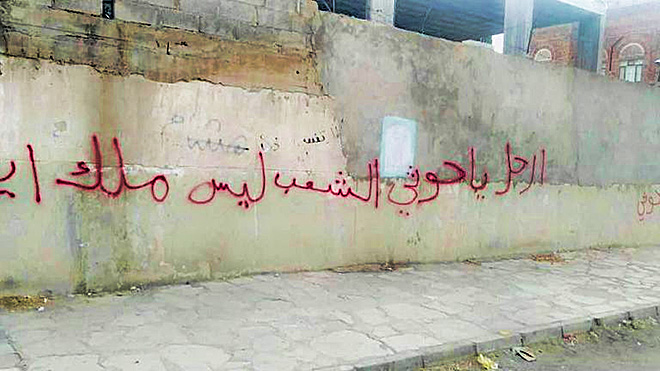 ارحل يا حوثي الشعب ليس ملك اي